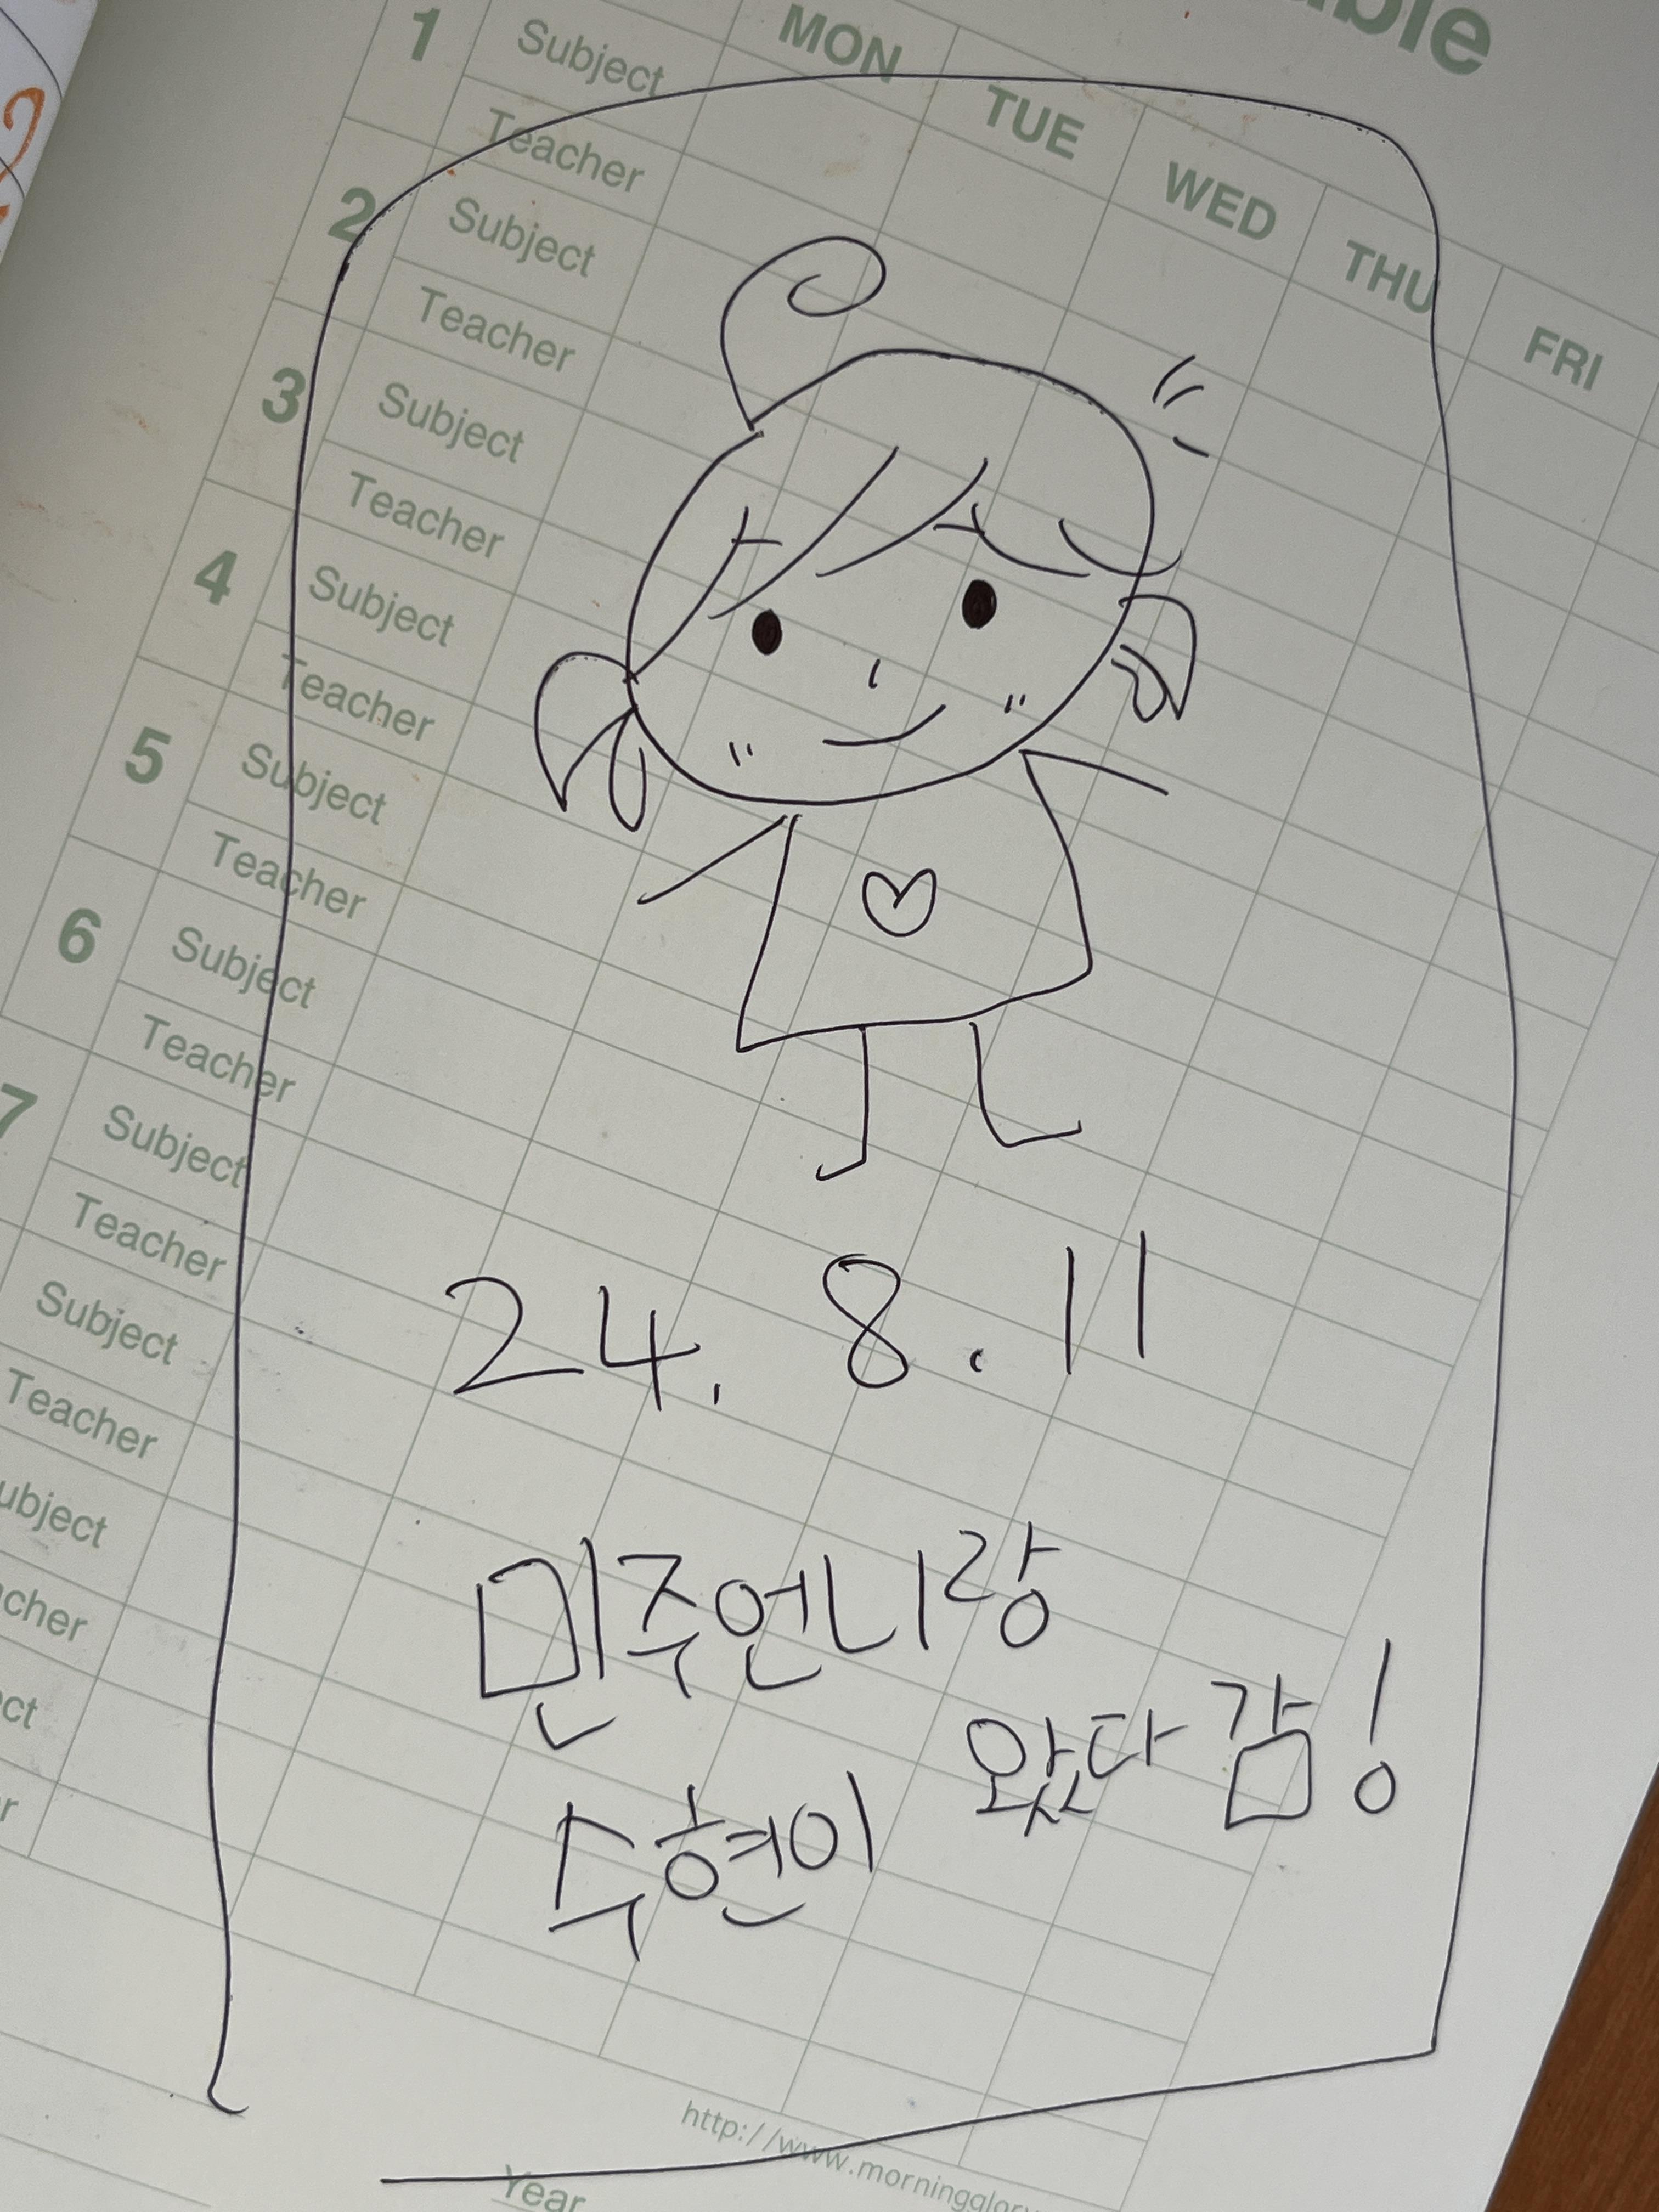 ble
MON TUE WED THU FRI
1 Subject
Teacher
2 Subject
Teacher
3 Subject
Teacher
4 Subject
Teacher
5 Subject
Teacher
6 Subject
Teacher
7 Subject
Teacher
Subject
Teacher
ubject
cher
ct
r
24. 8. 11
민주언니랑
수현이 왔다감!
http://www.morningglory
Year